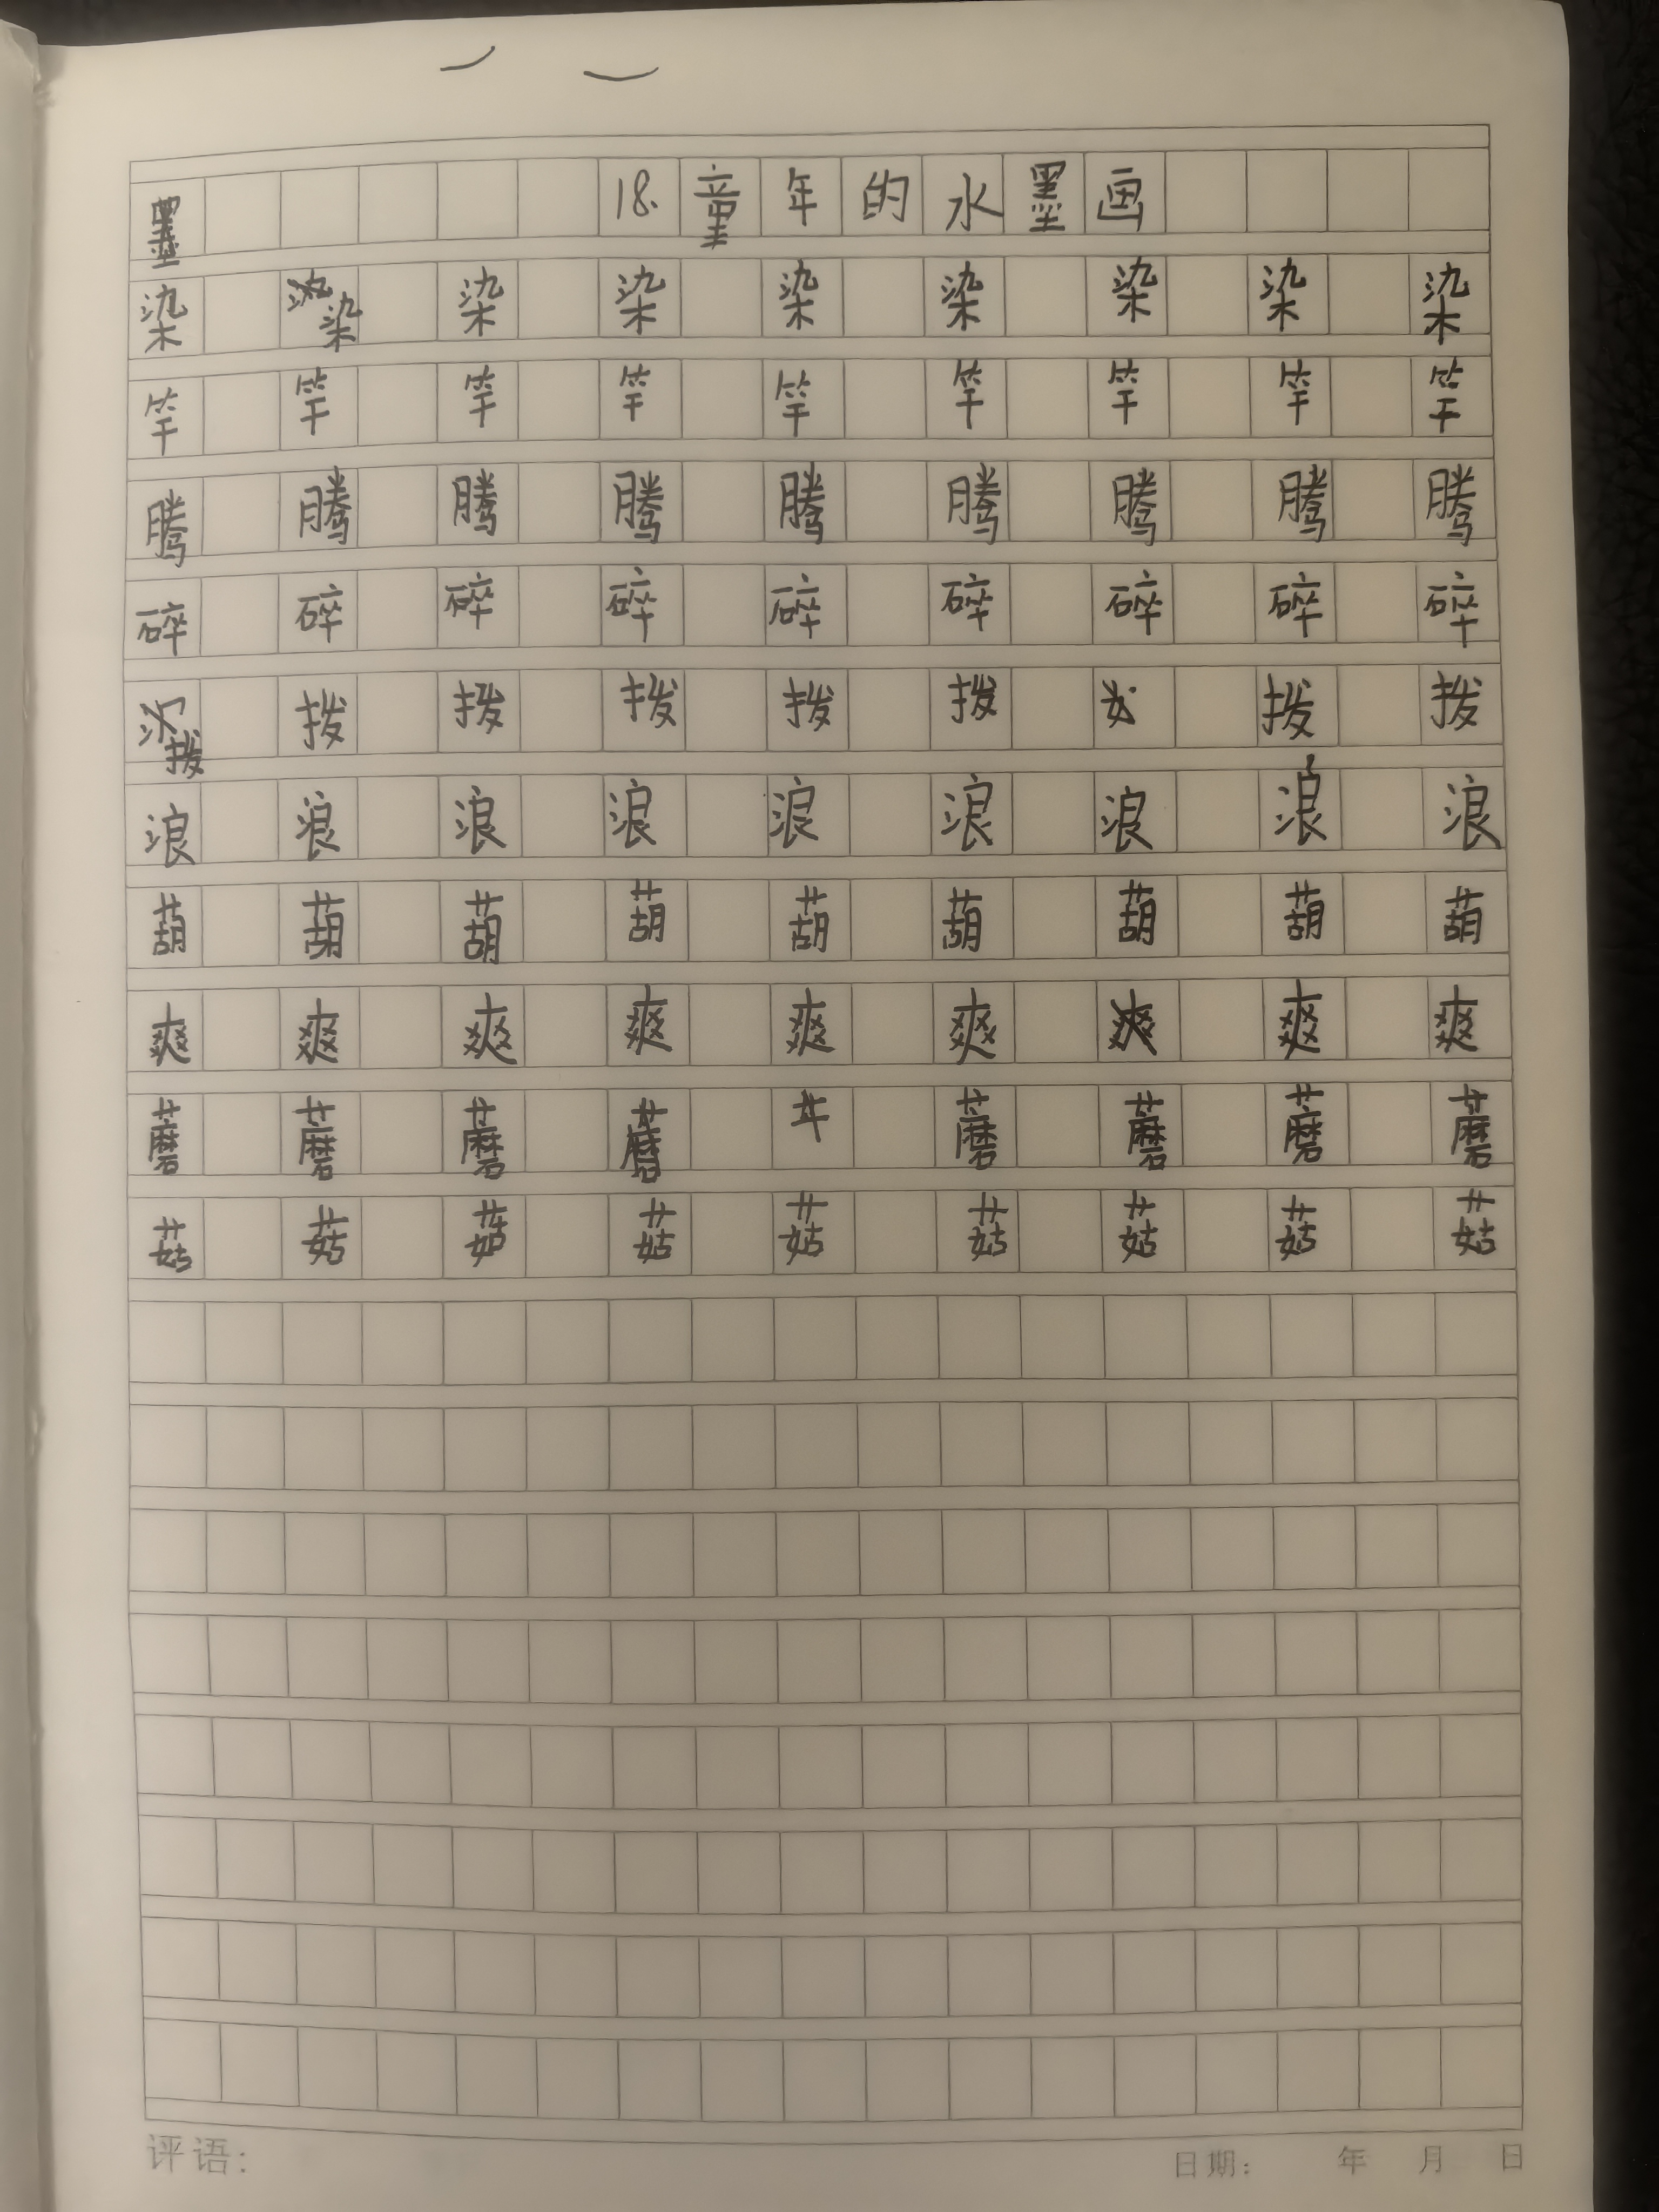 墨 18. 童 年 的 水 墨 画
染 染 染 染 染 染 染 染 染
竿 竿 竿 竿 竿 竿 竿 竿 竿
腾 腾 腾 腾 腾 腾 腾 腾 腾
碎 碎 碎 碎 碎 碎 碎 碎 碎
拨 拨 拨 拨 拨 拨 拨 拨
浪 浪 浪 浪 浪 浪 浪 浪 浪
葫 葫 葫 葫 葫 葫 葫 葫 葫
爽 爽 爽 爽 爽 爽 爽 爽
蘑 蘑 蘑 蘑 蘑 蘑 蘑 蘑
菇 菇 菇 菇 菇 菇 菇 菇 菇
评语: 日期: 年 月 日